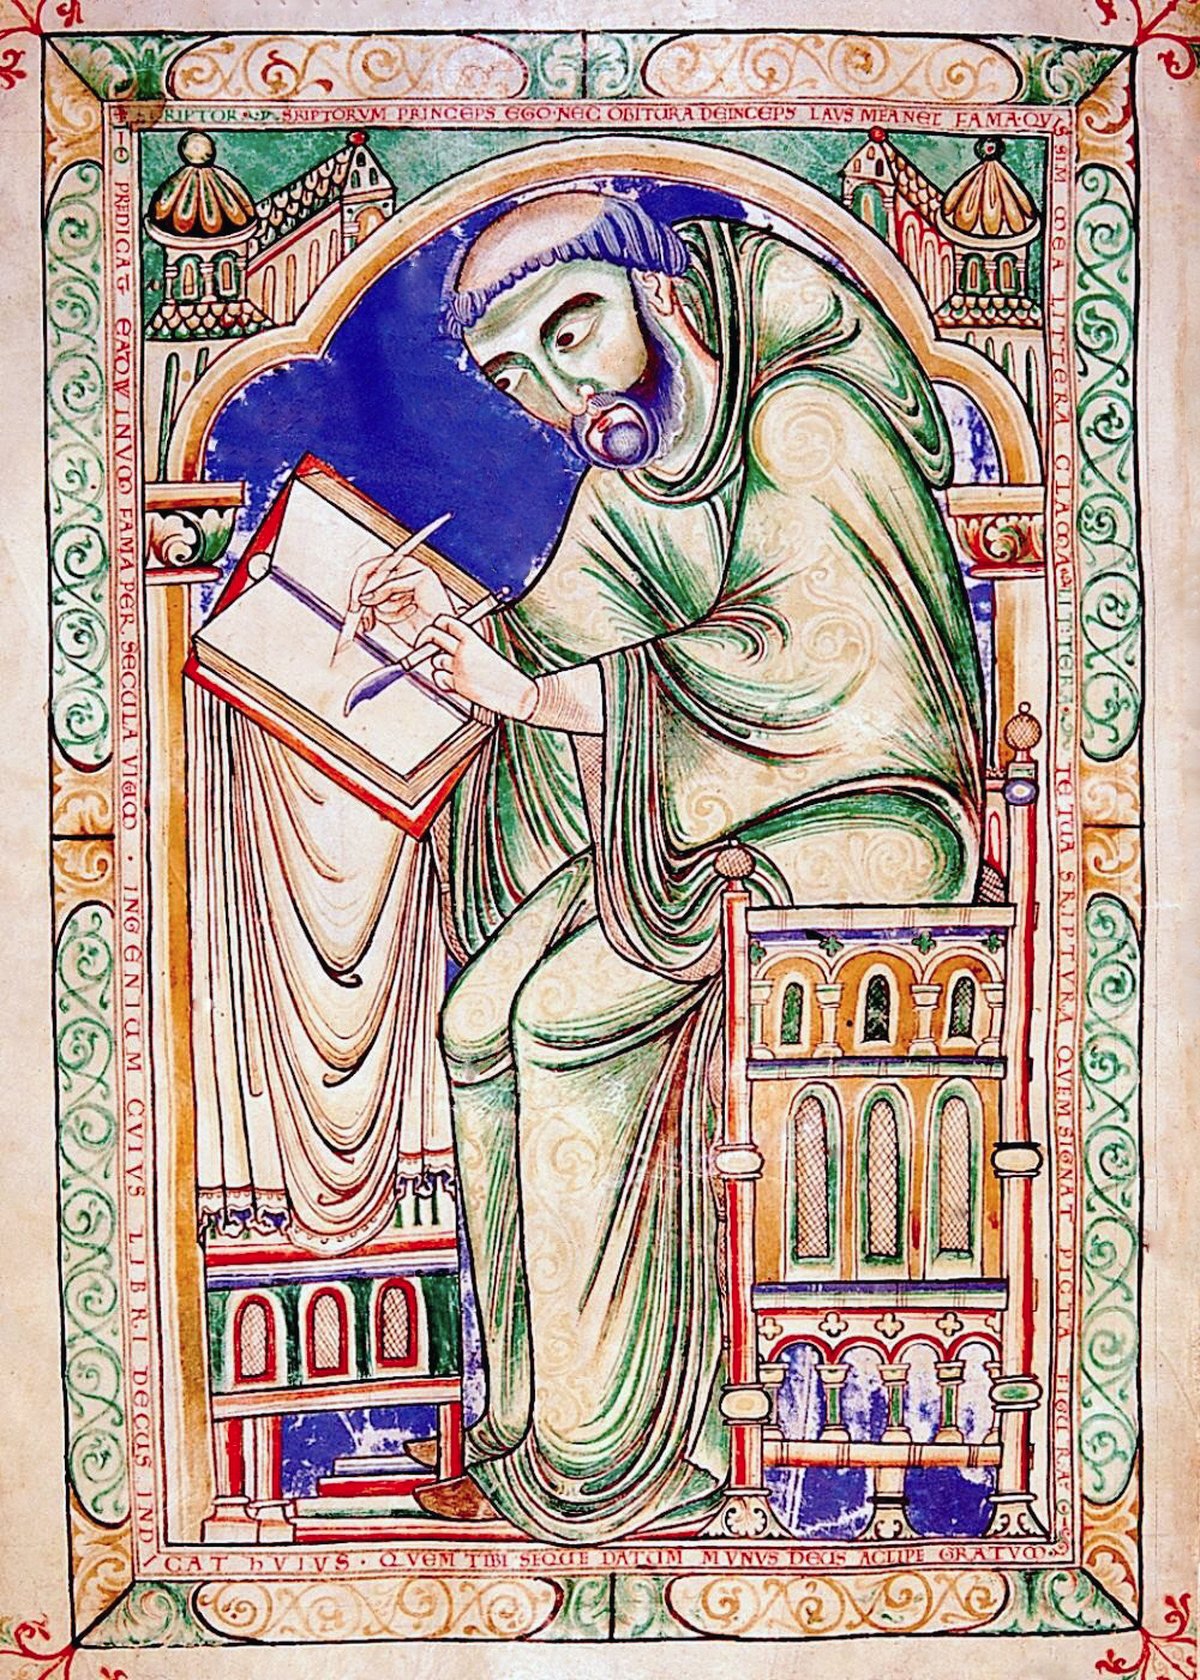 SRIPTORVM PRINCEPS EGO·NEC OBITURA DEINCEPS LAVS MEA NEC FAMA·QVI
S SIM MEA LITTERA CLAMA LITTERA · TE TUA SRIPTVRA QVEM SIGNAT PICTA FIGURA·
PREDICAT EADWINVM FAMA PER SECULA VIVUM · INGENIUM CVIVS LIBRI DECUS IND
ICAT HVIVS · QVEM TIBI SEQUE DATUM MVNUS DEUS ACCIPE GRATVM·